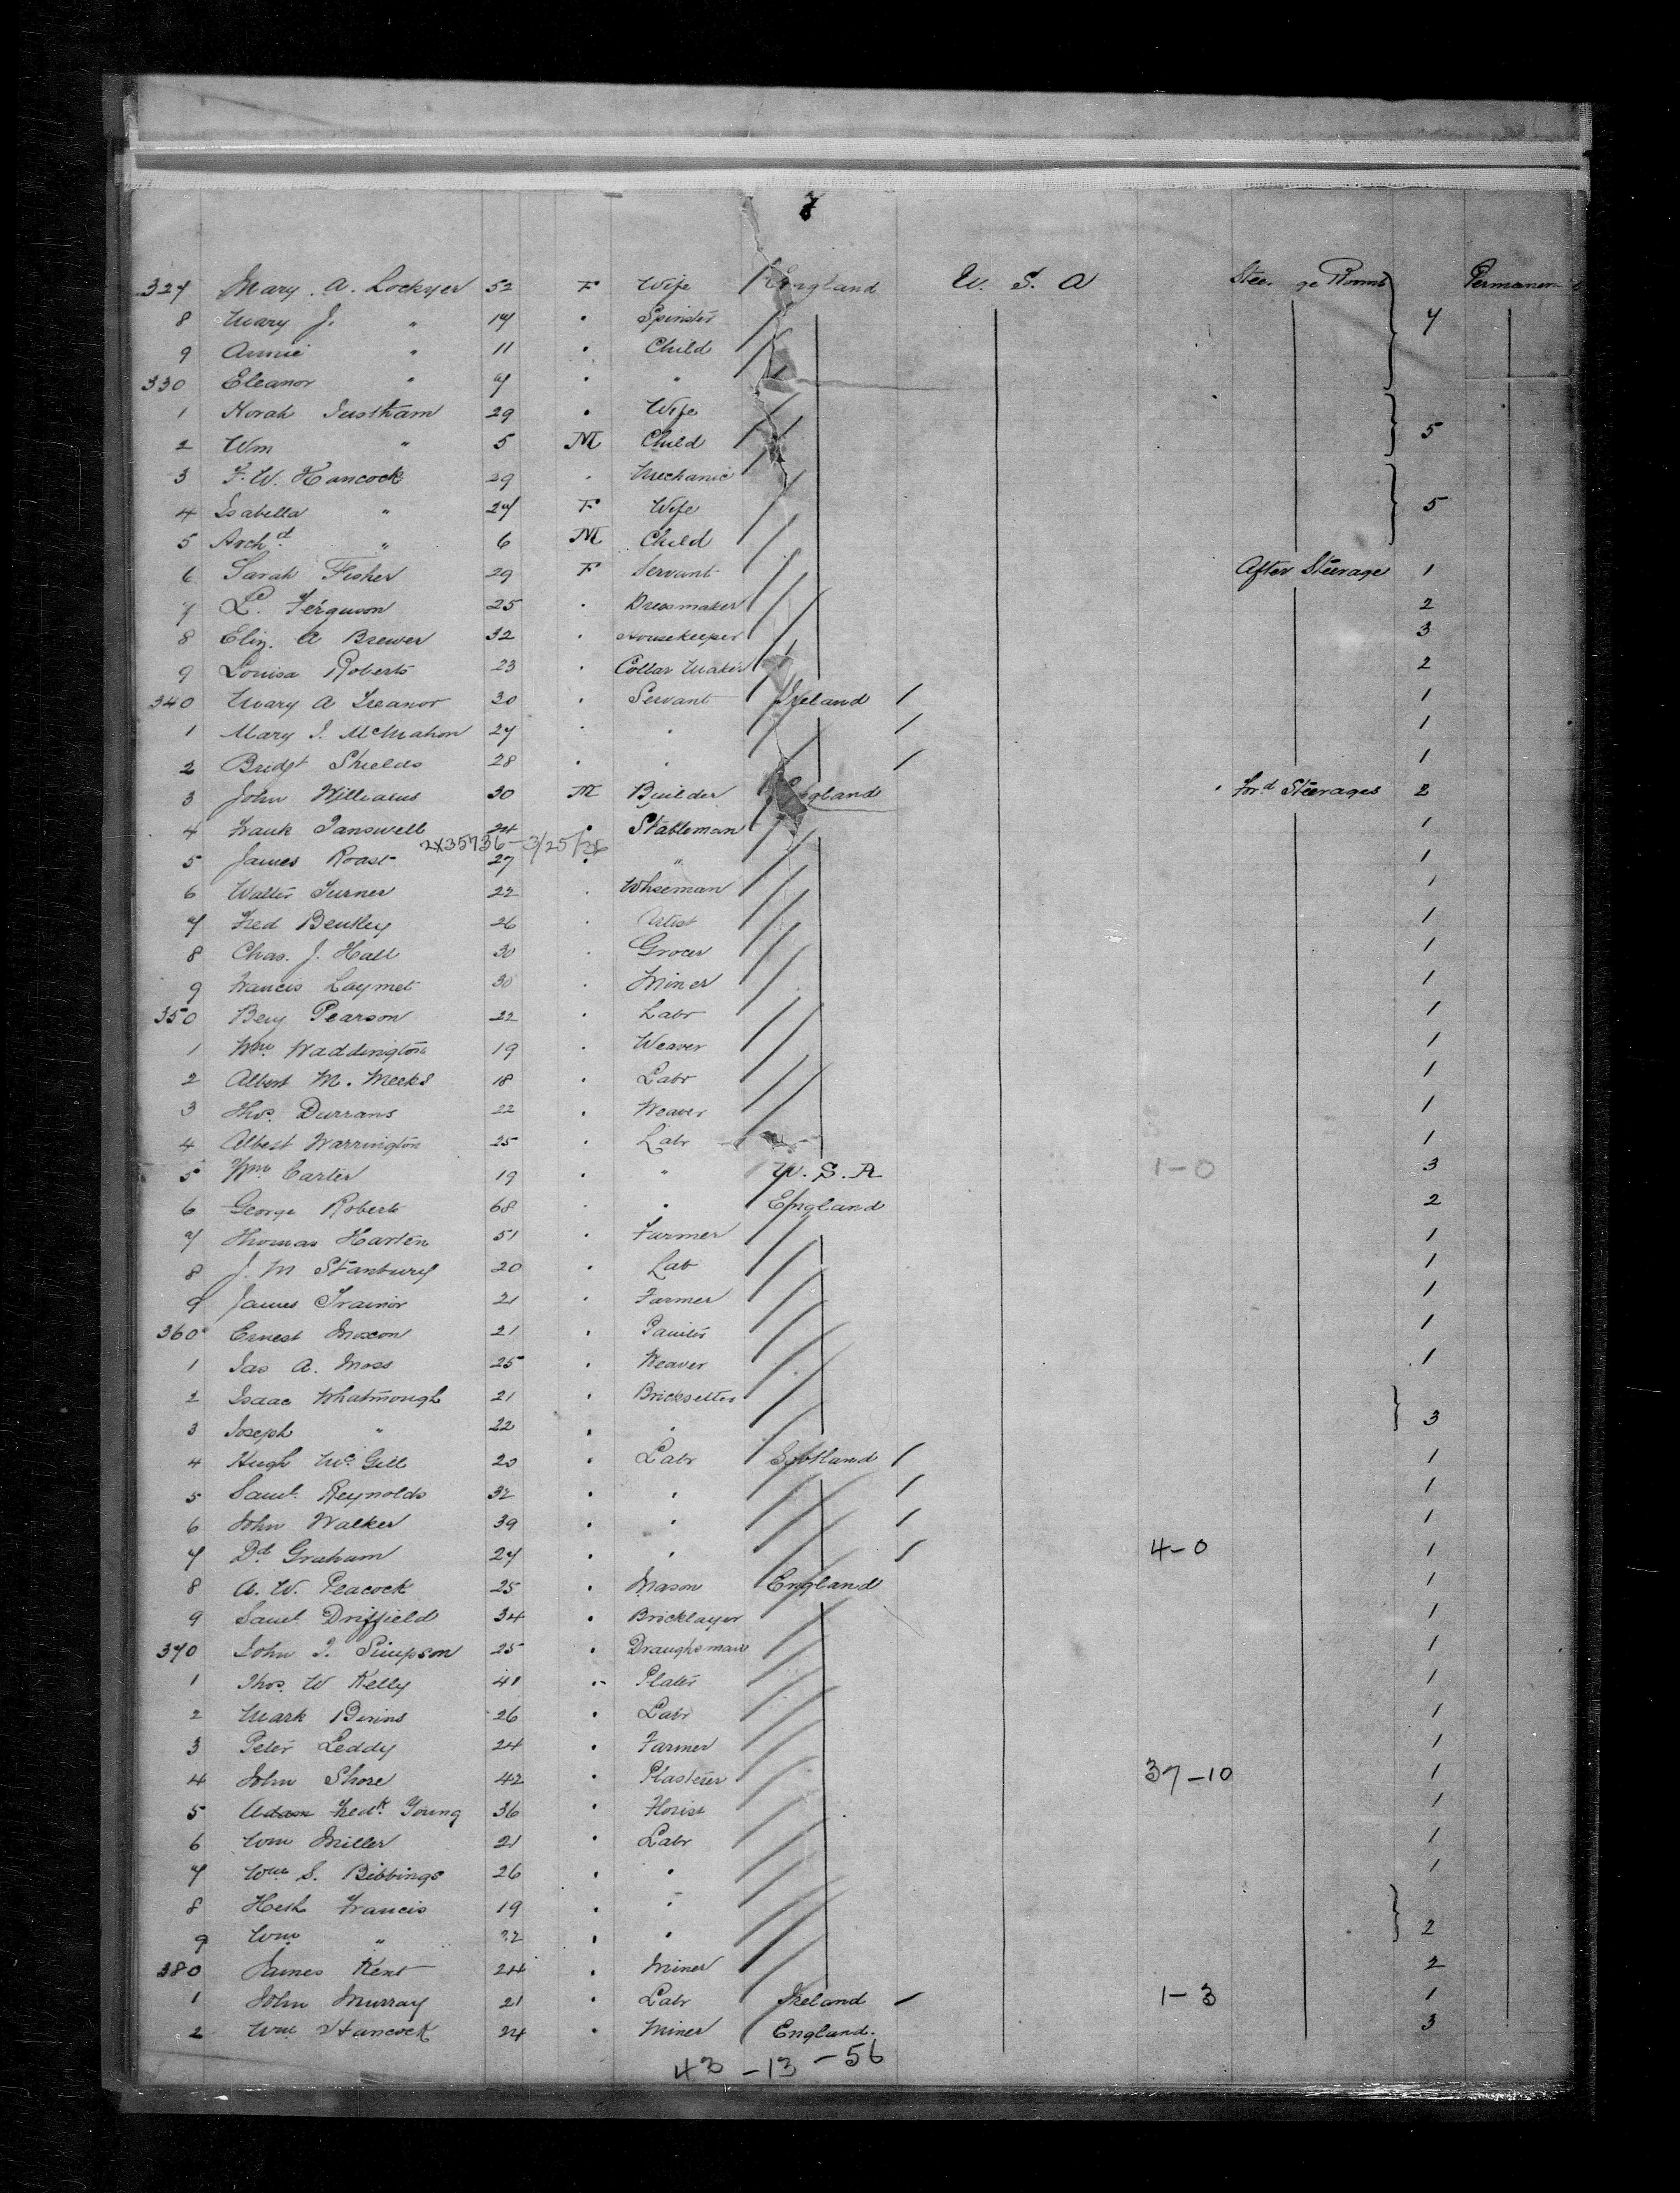 7
327 Mary . A. Lockyer 52 F Wife England U. S. A Stee ge Rooms Permanent
8 Mary J. " 17 . Spinster 7
9 Annie " 11 . Child
330 Eleanor " 7 . "
1 Norah Justham 29 . Wife
2 Wm " 5 M Child 5
3 F. W. Hancock 29 . Mechanic
4 Isabella " 27 F Wife 5
5 Archd " 6 M Child
6 Sarah Fisher 29 F Servant After Steerage 1
7 L. Ferguson 25 . Dressmaker 2
8 Eliz. A Brewer 32 . Housekeeper 3
9 Louisa Roberts 23 . Collar Maker 2
340 Mary A Treanor 30 . Servant Ireland 1
1 Mary J. McMahon 27 . . 1
2 Bridgt Shields 28 . . 1
3 John Williams 30 M Builder England Ford Steerages 2
4 Frank Tanswell 24 . Stableman 1
2X35736-3/25/36
5 James Roast 27 . " 1
6 Walter Turner 22 . Whseman 1
7 Fred Bentley 26 . Artist 1
8 Chas. J. Hall 30 . Grocer 1
9 Francis Laymet 30 . Miner 1
350 Benj Pearson 22 . Labr 1
1 Wm Waddington 19 . Weaver 1
2 Albert M. Meeks 18 . Labr 1
3 Thos. Durrans 22 . Weaver 1
4 Albert Warrington 25 . Labr 1
5 Wm Carter 19 . " U. S. A 1-0 3
6 George Roberts 68 . . England 2
7 Thomas Harten 51 . Farmer 1
8 J. M Stanbury 20 . Lab 1
9 James Trainor 21 . Farmer 1
360 Ernest Moxon 21 . Painter 1
1 Jas A. Moss 25 . Weaver 1
2 Isaac Whatmough 21 . Bricksetter
3 Joseph " 22 . . 3
4 Hugh Mc Gill 20 . Labr Scotland 1
5 Saml. Reynolds 32 . . 1
6 John Walker 39 . . 1
7 Dd Graham 27 . . 4-0 1
8 A. W. Peacock 25 . Mason England 1
9 Saml Driffield 34 . Bricklayer 1
370 John J. Simpson 25 . Draughsman 1
1 Thos. W Kelly 41 . Plater 1
2 Mark Binns 26 . Labr 1
3 Peter Leddy 24 . Farmer 1
4 John Shore 42 . Plasterer 37-10 1
5 Adam Fredk. Young 36 . Florist 1
6 Wm Miller 21 . Labr 1
7 Wm S. Bibbings 26 . . 1
8 Hesh Francis 19 . "
9 Wm " 22 . . 2
380 James Kent 24 . Miner 2
1 John Murray 21 . Labr Ireland 1-3 1
2 Wm Hancock 24 . Miner England. 3
43-13-56